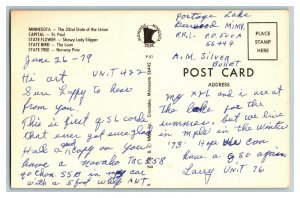 MINNESOTA — The 32nd State of the Union
CAPITAL — St. Paul
STATE FLOWER — Showy Lady Slipper
STATE BIRD — The Loon
STATE TREE — Norway Pine
June 26-79
Hi art UNIT 422
Sure happy to hear
from you.
This is first QSL cord
that ever got
Had a copy on you
have a Navaho TRC 258
40 Chan. SSB in my car
with a 5 foot Whip ANT.
P-51
POST CARD
ADDRESS
PLACE
STAMP
HERE
Portage Lake
MINN.
56444
A.M. Silver
Bullet
My XYL and i are at
the lake for the
summer. but we live
in mpls in the Winter
73's Hope We can
have a QSO again
Larry UNIT 76